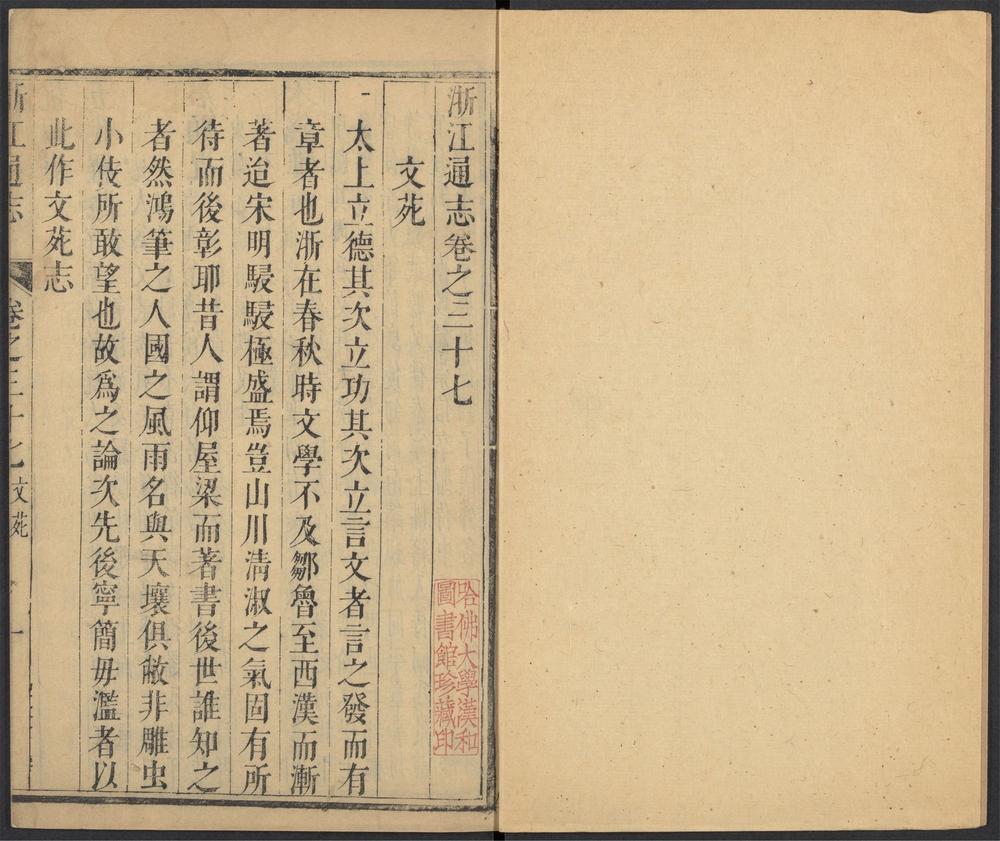 浙江通志卷之三十七
文苑
太上立德其次立功其次立言文者言之發而有
章者也浙在春秋時文學不及鄒魯至西漢而漸
著迨宋明駸駸極盛焉豈山川清淑之氣固有所
待而後彰耶昔人謂仰屋梁而著書後世誰知之
者然鴻筆之人國之風雨名與天壤俱敝非雕虫
小伎所敢望也故爲之論次先後寧簡毋濫者以
此作文苑志
浙江通志
卷之三十七文苑
一
哈佛大學漢和
圖書館珍藏印